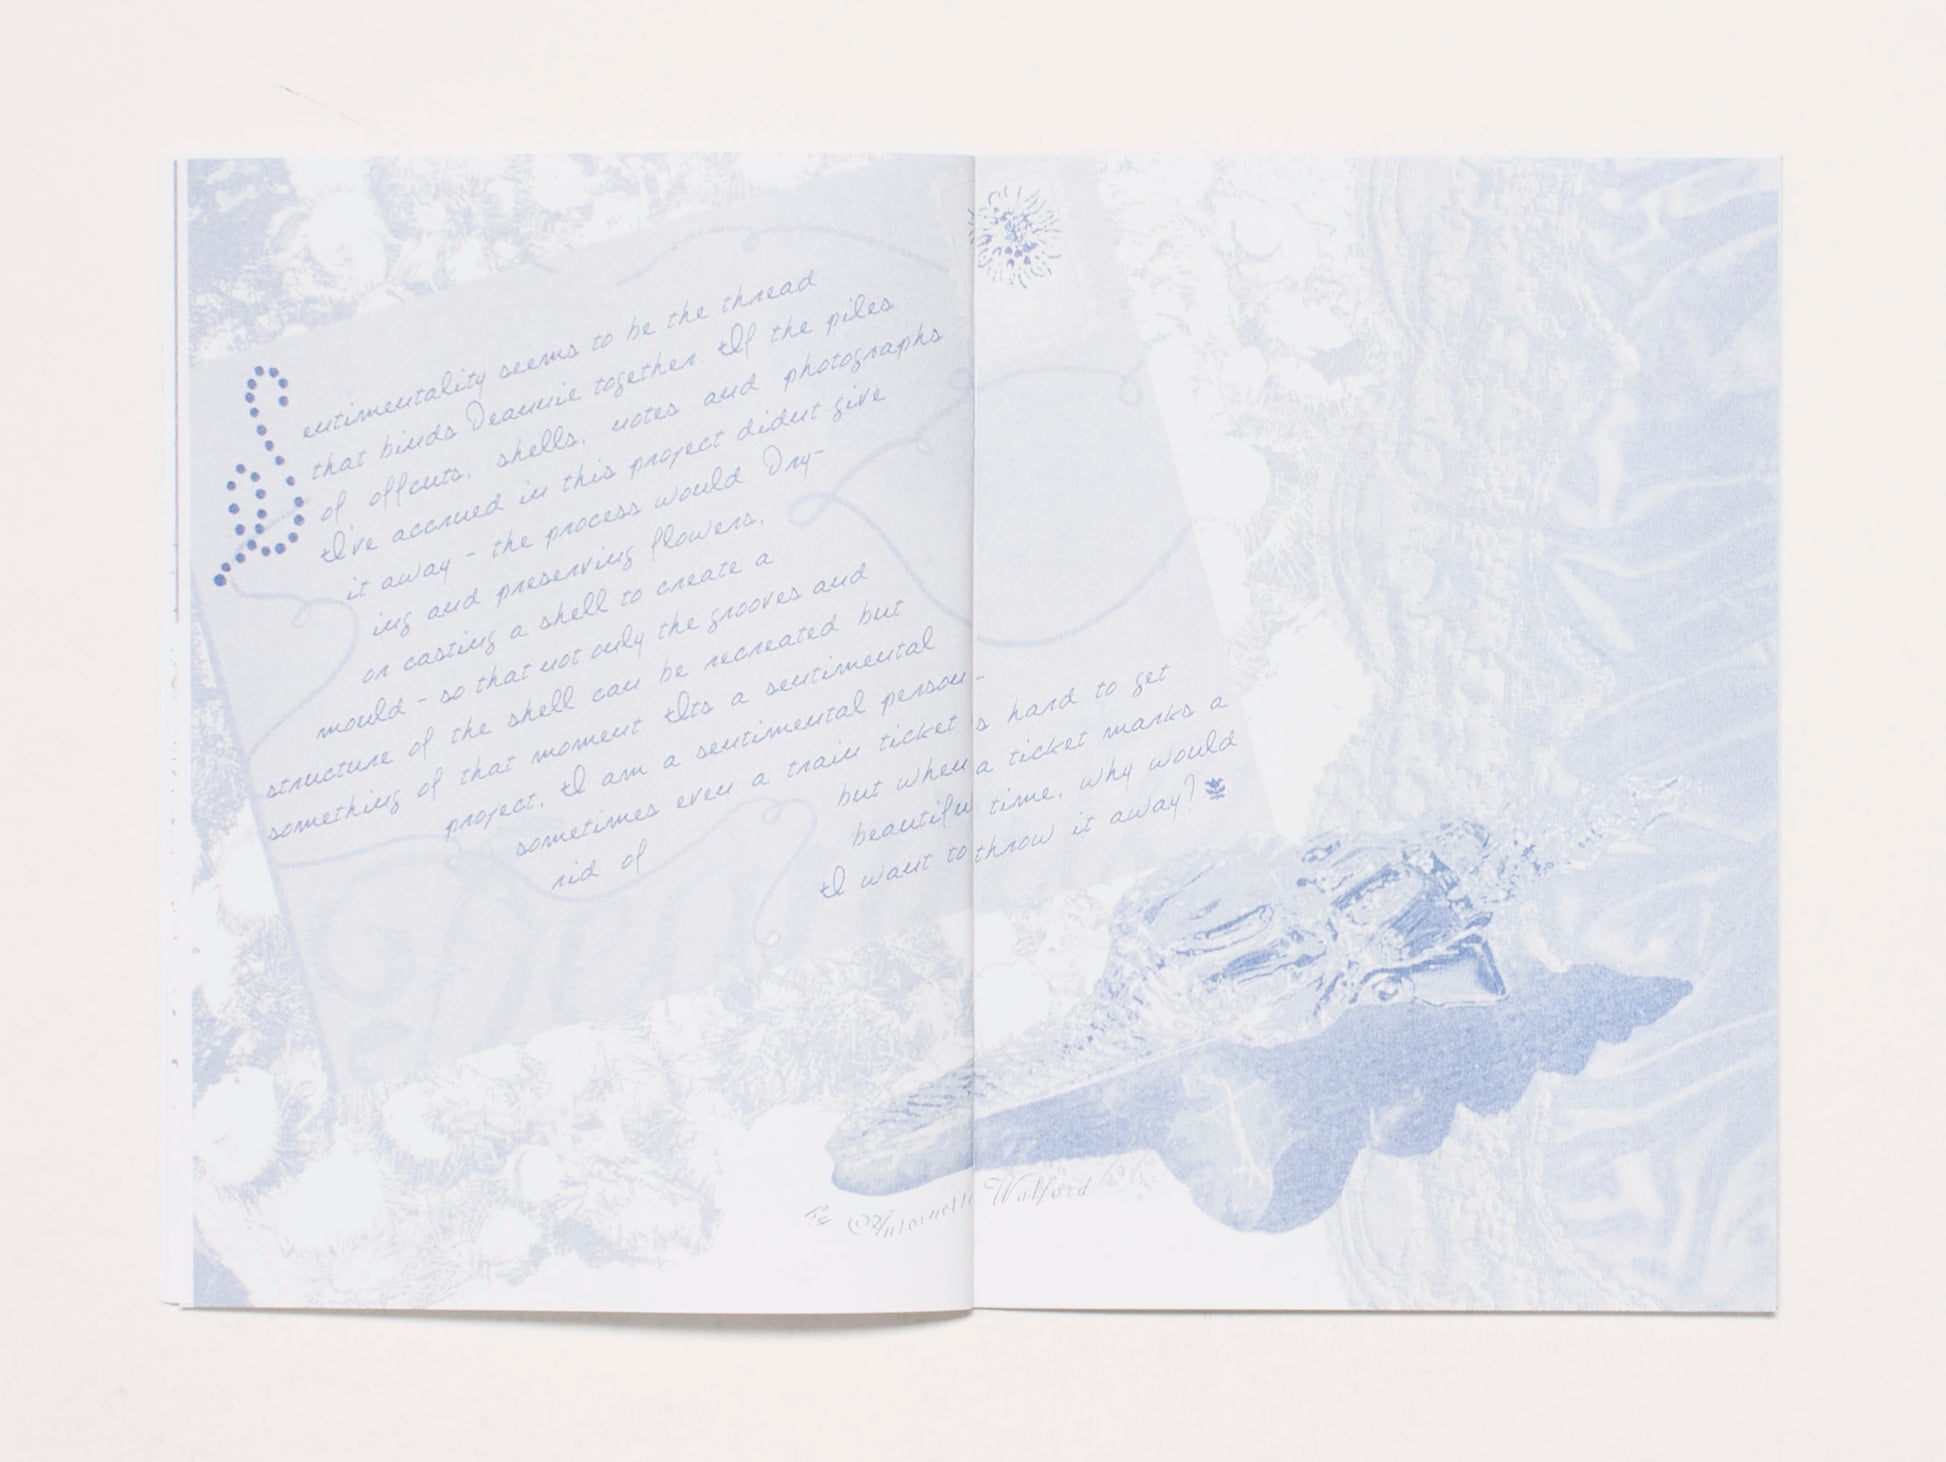 Sentimentality seems to be the thread
that binds Deannie together. If the piles
of offcuts, shells, notes and photographs
Ive accrued in this project didnt give
it away - the process would Dry-
ing and preserving flowers,
or casting a shell to create a
mould - so that not only the grooves and
structure of the shell can be recreated but
something of that moment Its a sentimental
project, I am a sentimental person-
sometimes even a train ticket s hard to get
rid of but when a ticket marks a
beautiful time, why would
I want to throw it away?
Antoinette